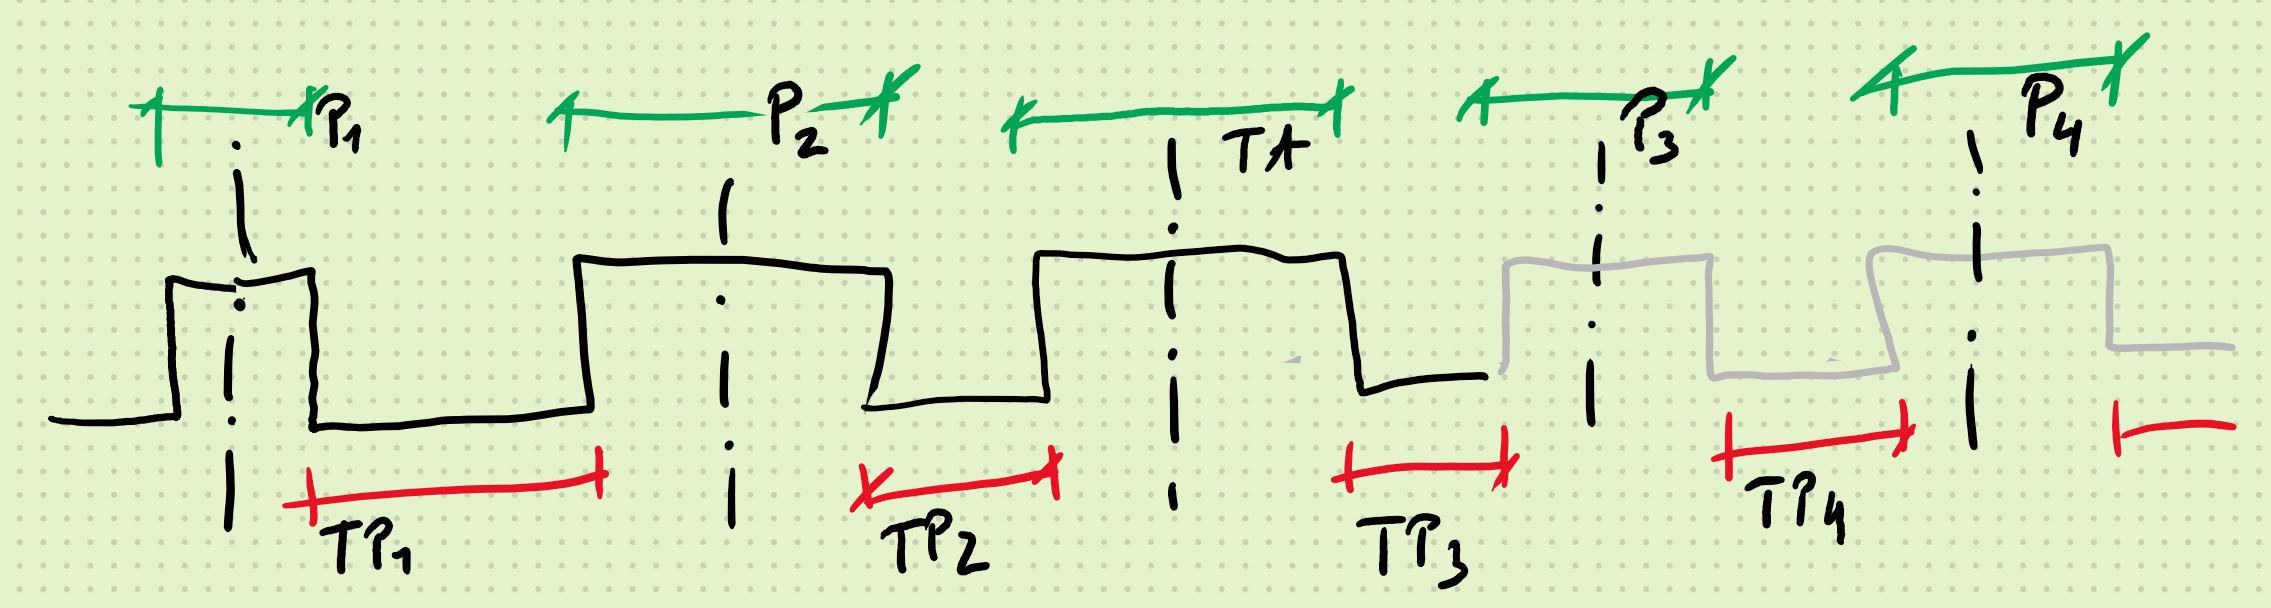 P1 P2 TA P3 P4
TP1 TP2 TP3 TP4